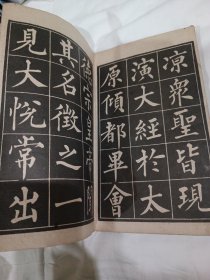 涼眾聖皆現
演大經於太
原傾都畢會
德宗皇帝聞
其名徵之一
見大悅常出